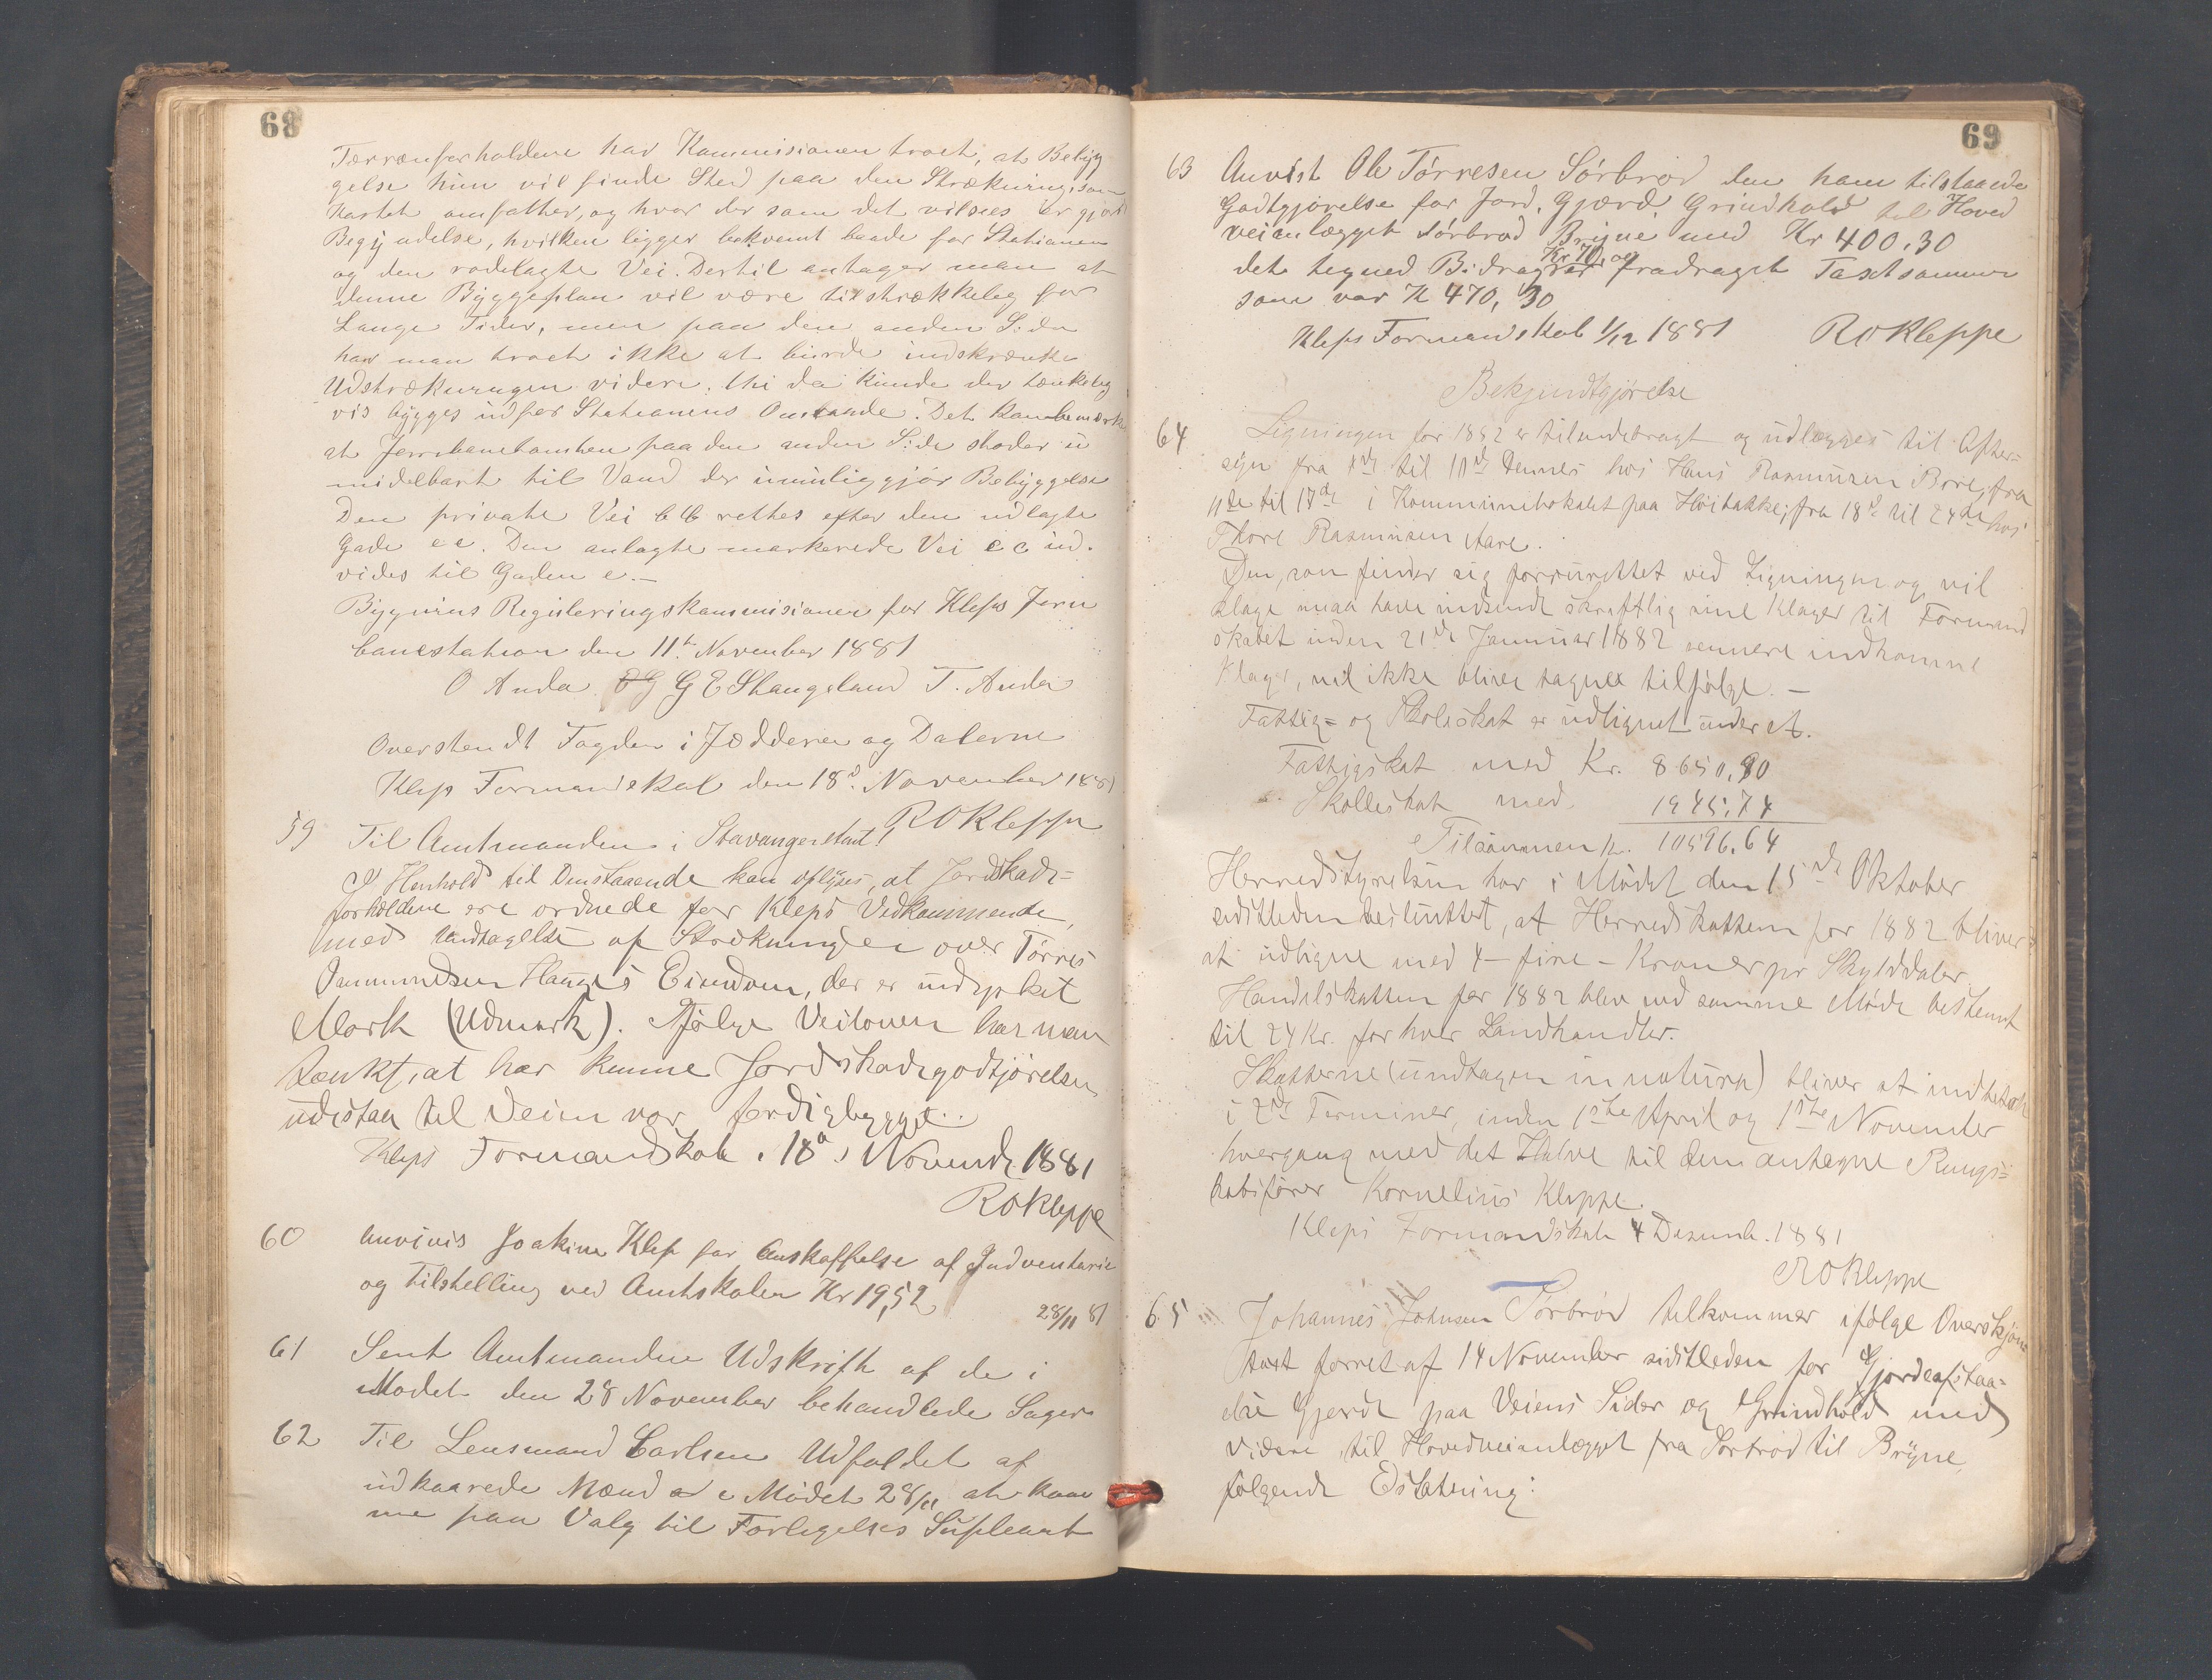 68
Tærrænforholdene har Kommisionen troet, at Bebyg
gelse kun vil finde Sted paa den Strækning, som
Kartet omfatter, og hvor der som det vilsees er gjort
Begyndelse, hvilken ligger bekvemt baade for Stationen
og den rodelagte Vei. Dertil antager man at
denne Byggeplan vil være tilstrækkeleg for
Lange Tider, men paa den anden Side
har man troet ikke at burde indskrænke
Udstrækningen videre, thi da kunde der tænkeleg
vis bygges udfor Stationens Omraade. Det kan bemærkes
at Jernbanetomten paa den anden Side støder u
midelbart til Vand der umuliggjør Bebyggelse
Den private Vei b b rettes efter den udlagte
Gade e e. Den anlagte markerede Vei c c ud-
vides til Gaden e.—
Bygnins Reguleringskommisionen for Kleps Jern
banestation den 11te November 1881
O Anda G E Skangeland T. Anda
Oversendt Fogden i Jædderen og Dalerne
Klep Formandskab den 18d. November 1881
ROKleppe
59 Til Amtmanden i Stavanger Amt!
I Henhold til Omstaaende kan oplyses, at Jordskade-
forholdene ere ordnede for Kleps Vedkommende,
med Undtagelse af Strækningen over Tørres
Ommundsen Hauges Eiendom, der er udyrket
Mark (Udmark). Ifølge Veiloven har man
tænkt, at her kunne Jordskadegodtjørelsen
udestaa til Veien var ferdigbygget.
Kleps Formandskab. 18d. Novemb. 1881
ROKleppe
60 Anvivis Joakim Klep for Anskaffelse af Indventarie
og Tilstelling ved Amtskolen Kr 19,52
28/11 81
61 Sent Amtmanden Udskrift af de i
Mødet den 28 November behandlede Sager
62 Til Lensmand Carlsen Udfaldet af
udkaarede Mænd i Mødet 28/11 at kom
me paa Valg til Forligelses Supleant
69
63 Anvist Ole Tørresen Sørbrød den ham tilstaaede
Godtgjørelse for Jord, Gjærd, Grindhold til Hoved
veianlægget Sørbrød Bryne med Kr 400,30
Kr 70, og
det tegned Bidrag fradraget Taxtsommen
som var K 470,30
Kleps Formandskab 1/12 1881 ROKleppe
Bekjendtgjørelse
64 Ligningen for 1882 er tilendebragt og udlægges til Efter=
syn fra 4de til 11de Dennes hos Hans Rasmusen Bore, fra
11de til 17de i Kommunelokalet paa Høitakke, fra 18de til 24de hos
Thore Rasmusen Aare.
Den, som finder sig forrurettet ved Ligningen og vil
klage maa have indsendt skriftlig sine Klager til Formand
skabet inden 21de Januar 1882 sennere indkomne
Klager, vil ikke bliver tagnet tilfølge.—
Fattig= og Skoleskat er udlignet under et.
Fattigskat med Kr. 8650,90
Skolleskat med 1945,74
Tilsammen Kr. 10596,64
Herredstyrelsen har i Mødet den 15de Oktober
sidstleden besluttet, at Herredskatten for 1882 bliver
at udligne med 4– fire – Kroner pr Skylddaler
Handelskatten for 1882 blev ved samme Møde bestemt
til 24 Kr. for hver Landhandler.
Skatterne (undtagen in natura) bliver at indbetale
i 2de Terminer, inden 1ste April og 1ste November
hvergang med det Halve til den antagne Rengs=
kabsfører Kornelius Kleppe.
Kleps Formandskab 4 Desemb. 1881
ROKleppe
65 Johannes Johnsen Sørbrød tilkommer ifølge Overskjøns
taxt forret af 14 November sidstleden for Gjordeafstaa=
else Gjerde paa Veiens Sider og Grindhold med
videre til Hovedveianlægget fra Sørbrød til Bryne,
følgende Estatning: